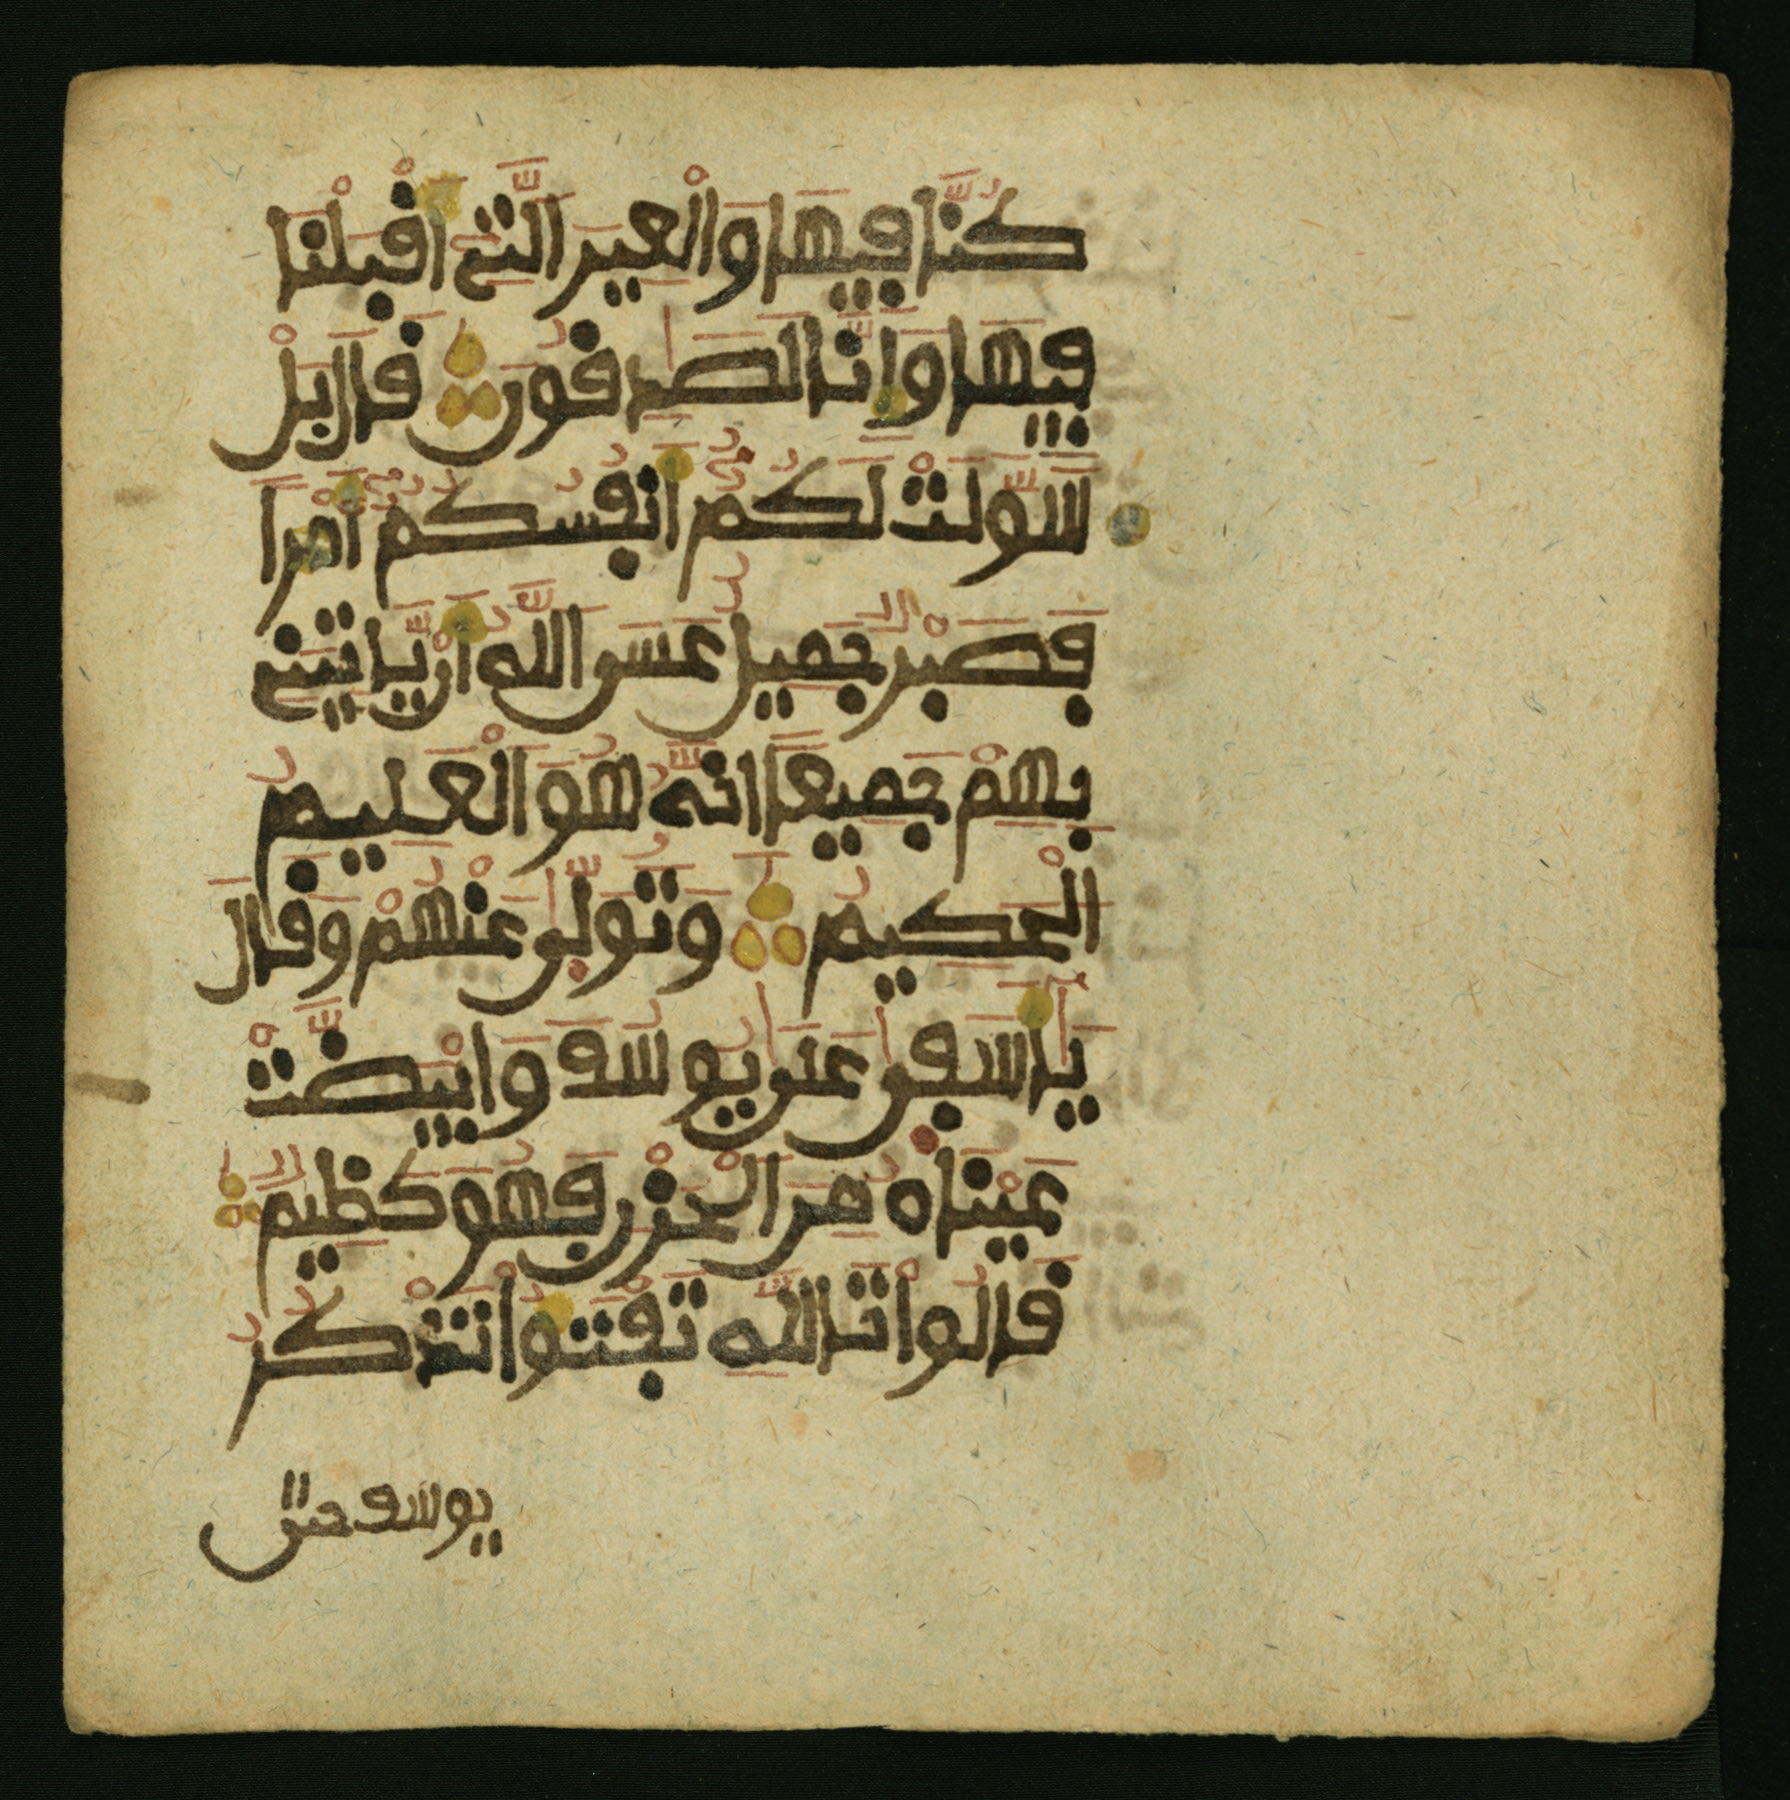 كُنَّا فِيهَا وَالْعِيرَ الَّتِي أَقْبَلْنَا
فِيهَا وَإِنَّا لَصَادِقُونَ قَالَ بَلْ
سَوَّلَتْ لَكُمُ أَنفُسُكُمُ أَمْراً
فَصَبْرٌ جَمِيلٌ عَسَى اللَّهُ أَنْ يَّاتِيَنِي
بِهِمْ جَمِيعاً إِنَّهُ هُوَ الْعَلِيمُ
الْحَكِيمُ وَتَوَلَّى عَنْهُمْ وَقَالَ
يَا أَسَفَى عَلَى يُوسُفَ وَابْيَضَّتْ
عَيْنَاهُ مِنَ الْحُزْنِ فَهُوَ كَظِيمٌ
قَالُوا تَاللَّهِ تَفْتَؤُا تَذْكُرُ
يوسف حتى